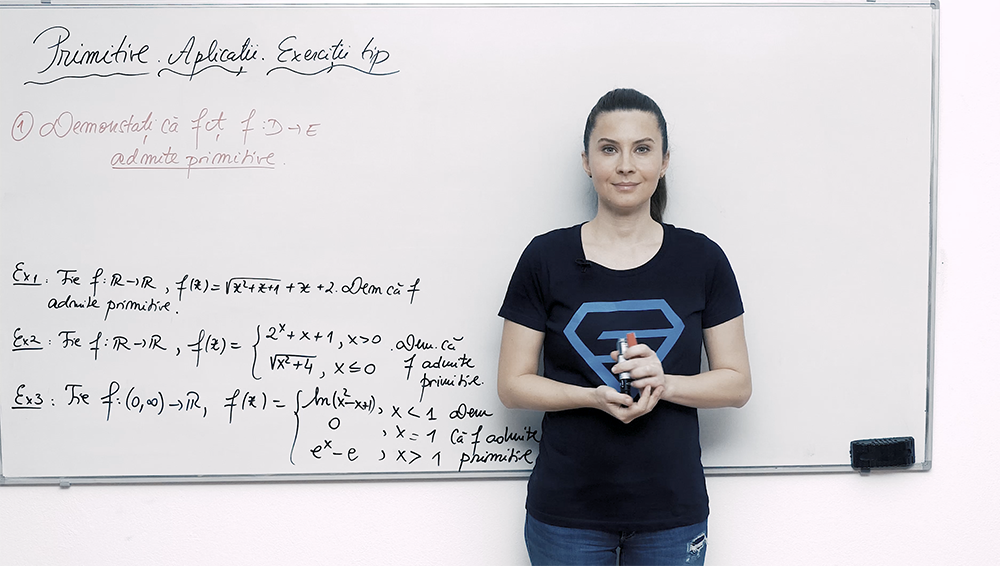 Primitive. Aplicații. Exerciții tip
① Demonstați că fcț f:D→E
admite primitive.
Ex1: Fie f:ℝ→ℝ, f(x)=√(x²+x+1)+x+2. Dem că f
admite primitive.
Ex2: Fie f:ℝ→ℝ, f(x)= { 2ˣ+x+1, x>0 . Dem. că
√(x²+4), x≤0 f admite
primitive.
Ex3: Fie f:(0,∞)→ℝ, f(x)= { ln(x²-x+1), x<1 Dem
0 , x=1 că f admite
eˣ-e , x>1 primitive